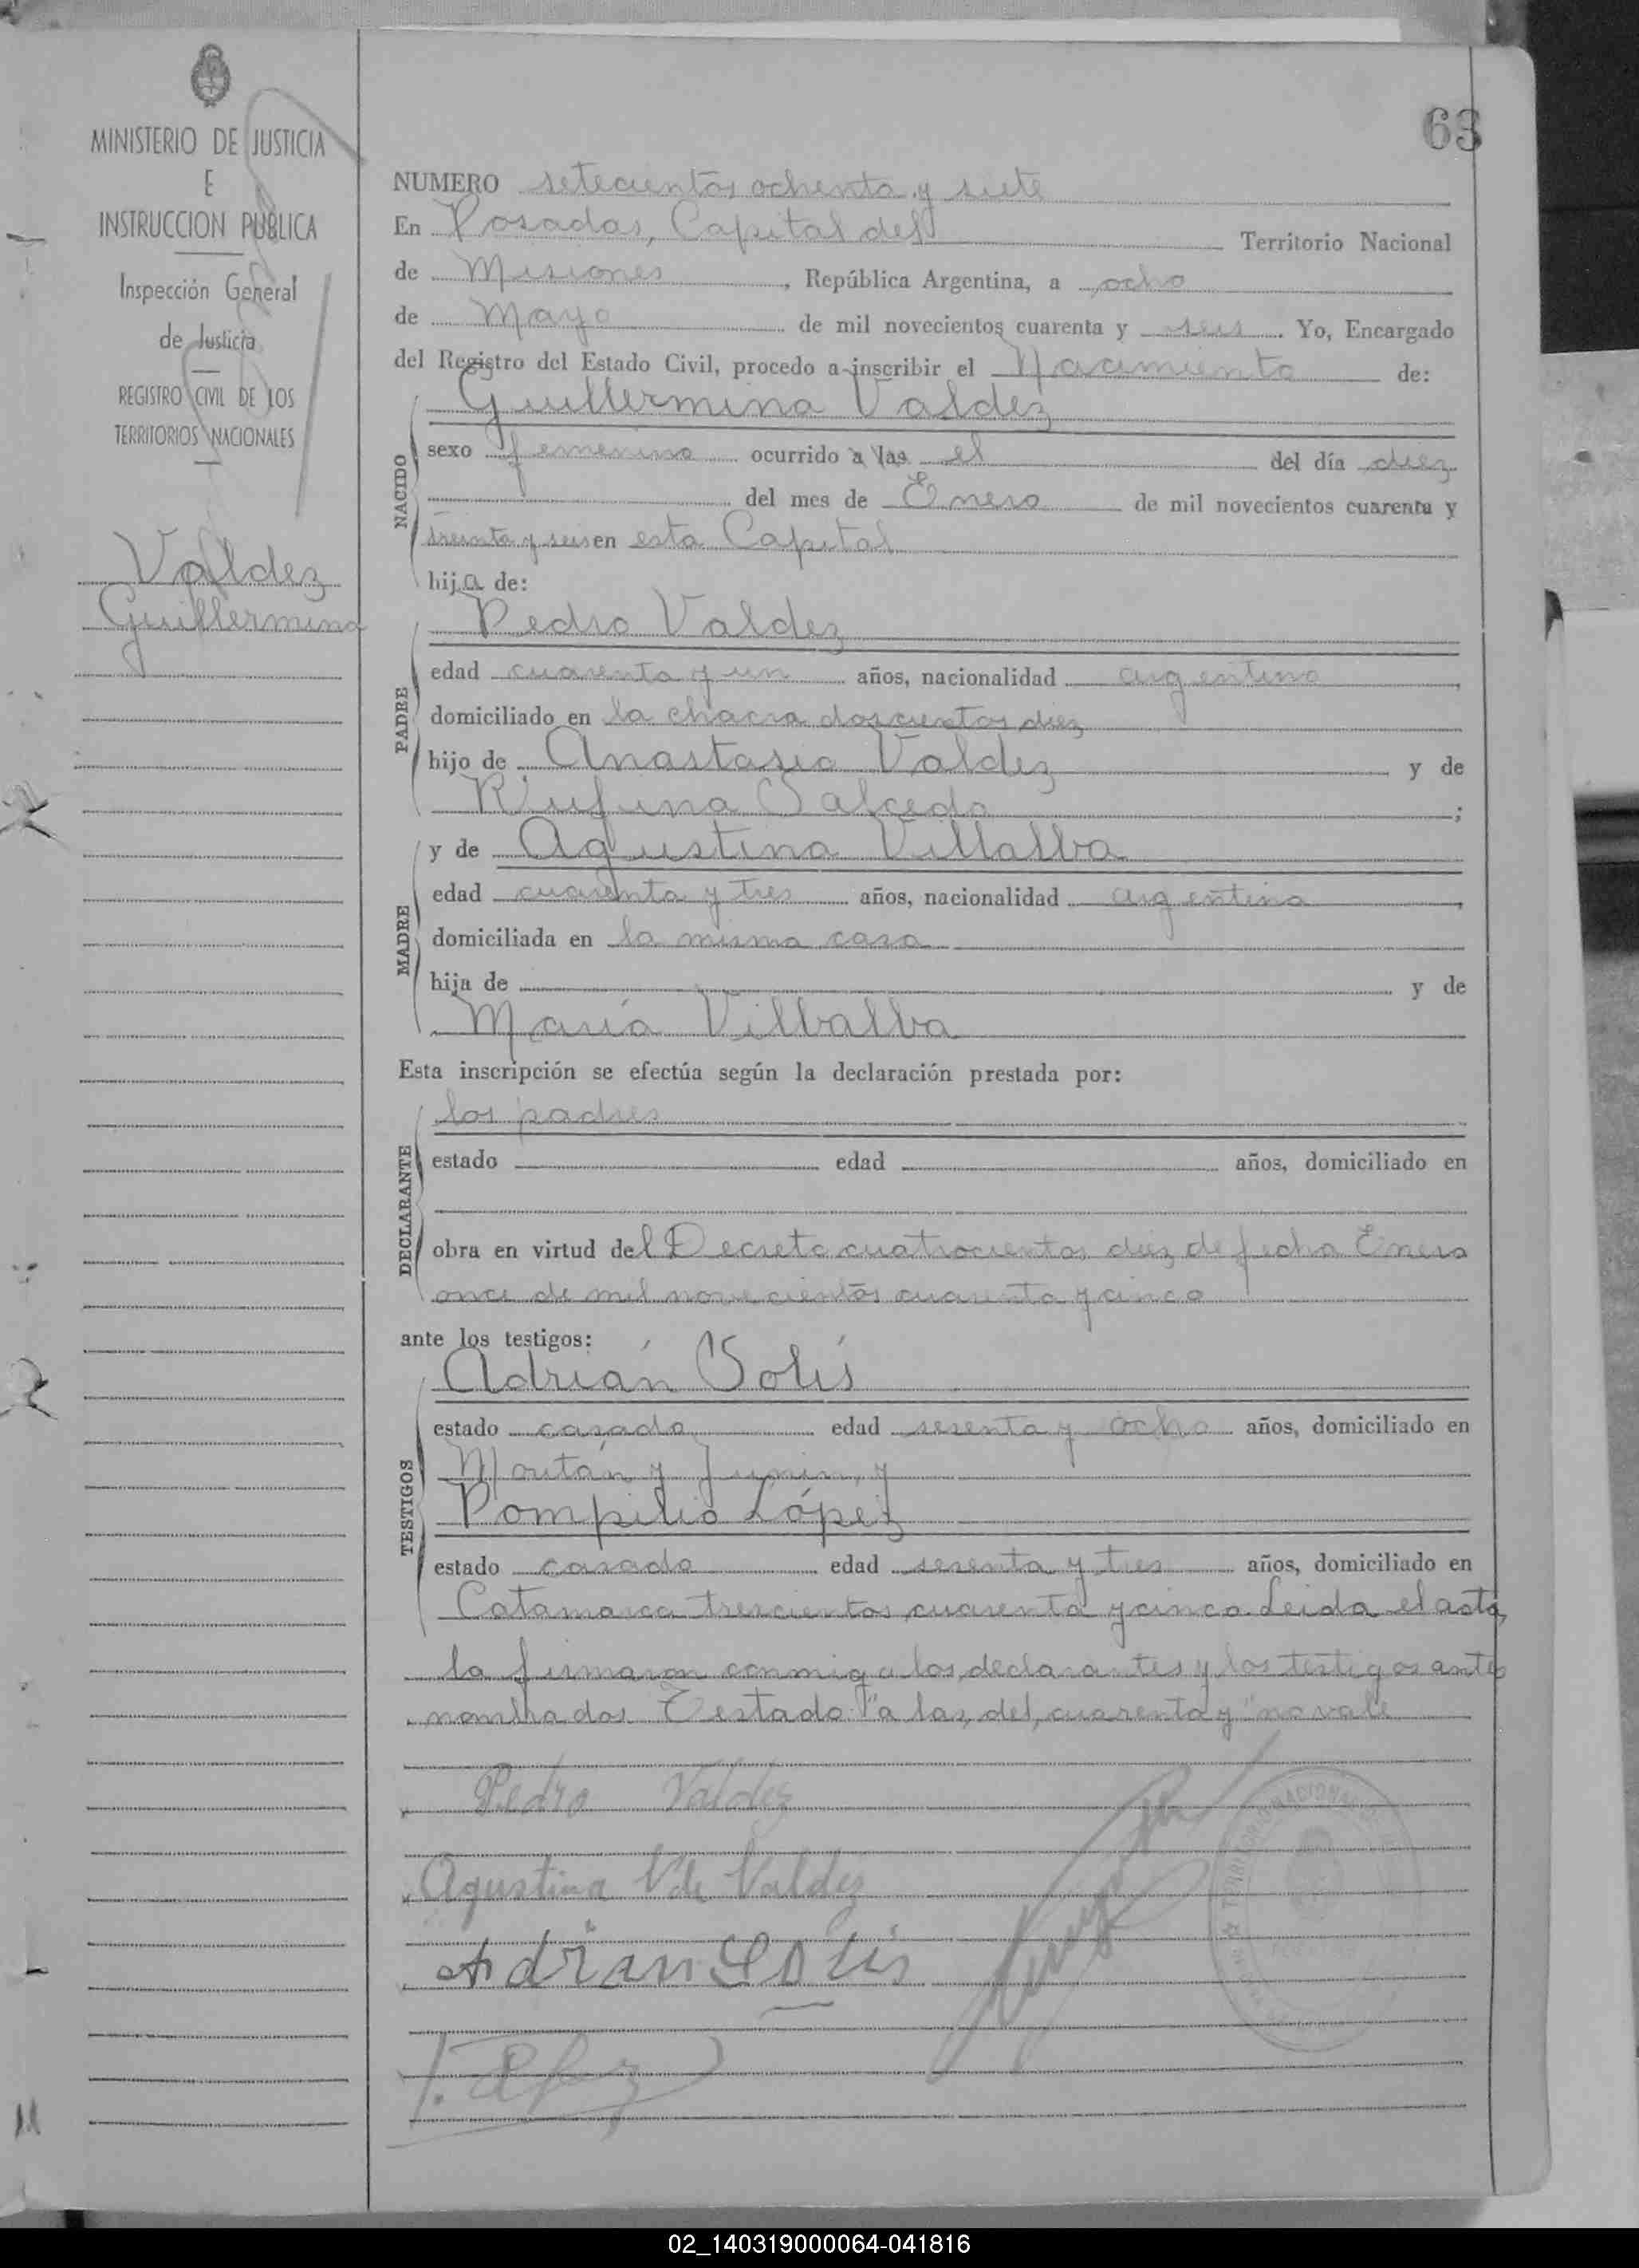 63
MINISTERIO DE JUSTICIA
E
INSTRUCCION PUBLICA
Inspección General
de Justicia
REGISTRO CIVIL DE LOS
TERRITORIOS NACIONALES
Valdez
Guillermina
NUMERO setecientos ochenta y siete
En Posadas, Capital del Territorio Nacional
de Misiones, República Argentina, a ocho
de Mayo de mil novecientos cuarenta y seis. Yo, Encargado
del Registro del Estado Civil, procedo a inscribir el Nacimiento de:
Guillermina Valdez
NACIDO
sexo femenino ocurrido a las el del día diez
del mes de Enero de mil novecientos cuarenta y
treinta y seis en esta Capital
hija de:
Pedro Valdez
PADRE
edad cuarenta y un años, nacionalidad argentino,
domiciliado en la chacra doscientos diez
hijo de Anastasio Valdez y de
Rufina Salcedo;
y de Agustina Villalba
MADRE
edad cuarenta y tres años, nacionalidad argentina,
domiciliada en la misma casa
hija de y de
María Villalba
Esta inscripción se efectúa según la declaración prestada por:
los padres
DECLARANTE
estado edad años, domiciliado en
obra en virtud del Decreto cuatrocientos diez de fecha Enero
once de mil novecientos cuarenta y cinco
ante los testigos:
Adrián Solís
TESTIGOS
estado casado edad sesenta y ocho años, domiciliado en
y Junin, y
Pompilio López
estado casado edad sesenta y tres años, domiciliado en
Catamarca trescientos cuarenta y cinco. Leida el acta,
la firmaron conmigo los declarantes y los testigos antes
nombrados. Testado: "a las, del, cuarenta y" no vale
Pedro Valdéz
Agustina V de Valdéz
Adrian Solis
López
TERRITORIO NACIONAL
02_140319000064-041816